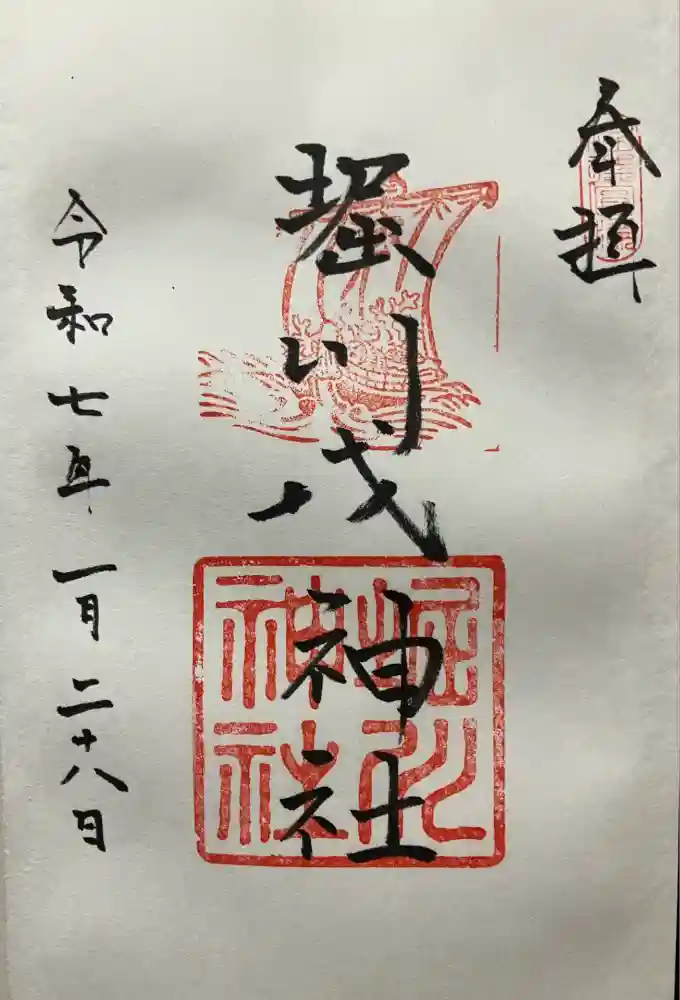 奉拝
堀川戎神社
堀川
神社
令和七年一月二十八日